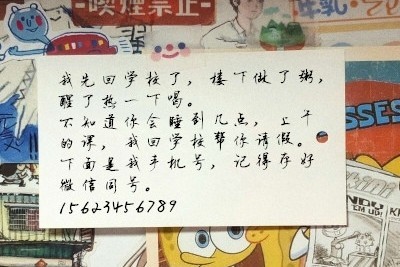 喫煙禁止
牛乳
我先回学校了，楼下做了粥，
醒了热一下喝。
不知道你会睡到几点，上午
的课，我回学校帮你请假。
下面是我手机号，记得存好
微信同号。
15623456789